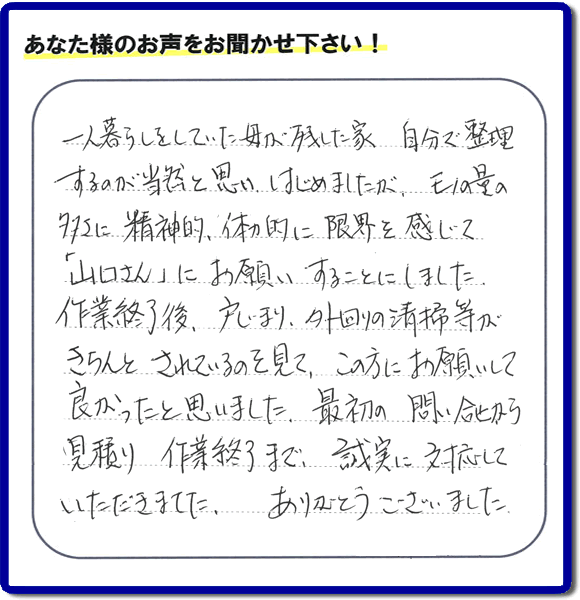 あなた様のお声をお聞かせ下さい！
一人暮らしをしていた母が残した家 自分で整理
するのが当然と思い、はじめましたが、モノの量の
多さに 精神的、体力的に 限界を感じて
「山口さん」に お願いすることにしました。
作業終了後、戸じまり、外回りの清掃等が
きちんと されているのを見て、この方にお願いして
良かったと思いました。最初の 問い合せから
見積り 作業終了まで、誠実に対応して
いただきました。 ありがとうございました。